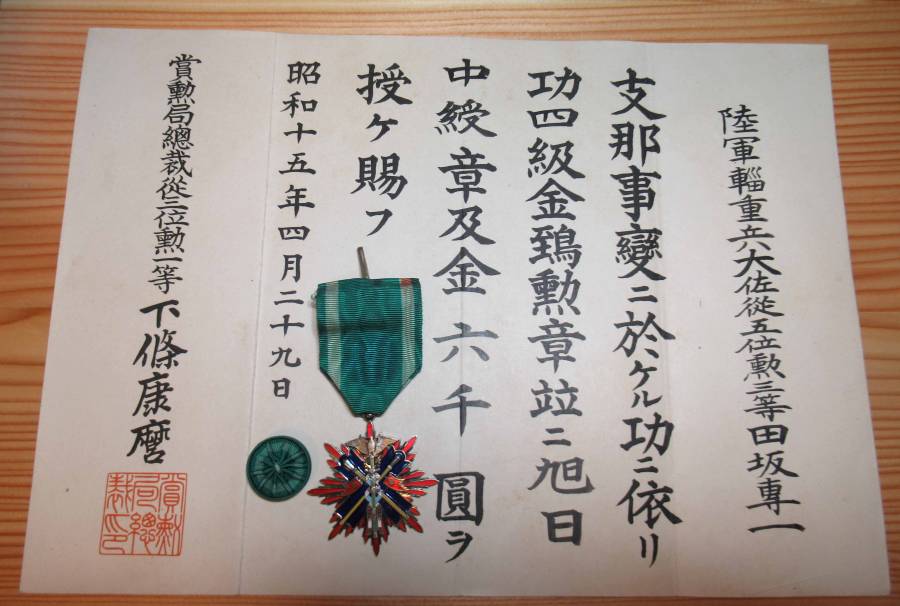 陸軍輜重兵大佐從五位勲三等田坂專一
支那事變ニ於ケル功ニ依リ
功四級金鵄勲章竝ニ旭日
中綬章及金六千圓ヲ
授ケ賜フ
昭和十五年四月二十九日
賞勲局總裁從三位勲一等下條康麿
賞勲局總裁之印